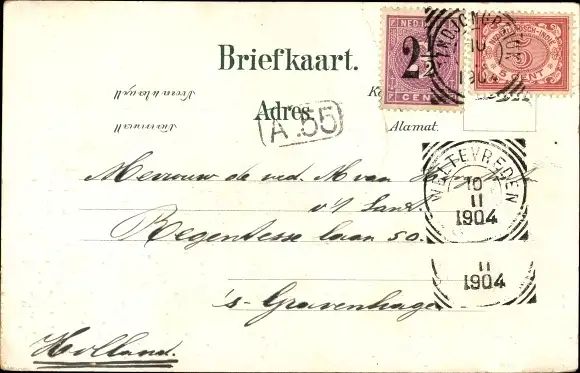 Briefkaart.
Adres
A.55
Alamat.
NED.
2½
CENT
5
5 CENT
10
1904
WELTEVREDEN
10
11
1904
11
1904
Mevrouw de wed. M van
v't Sant.
Regentesse laan 50.
's-Gravenhage
Holland.